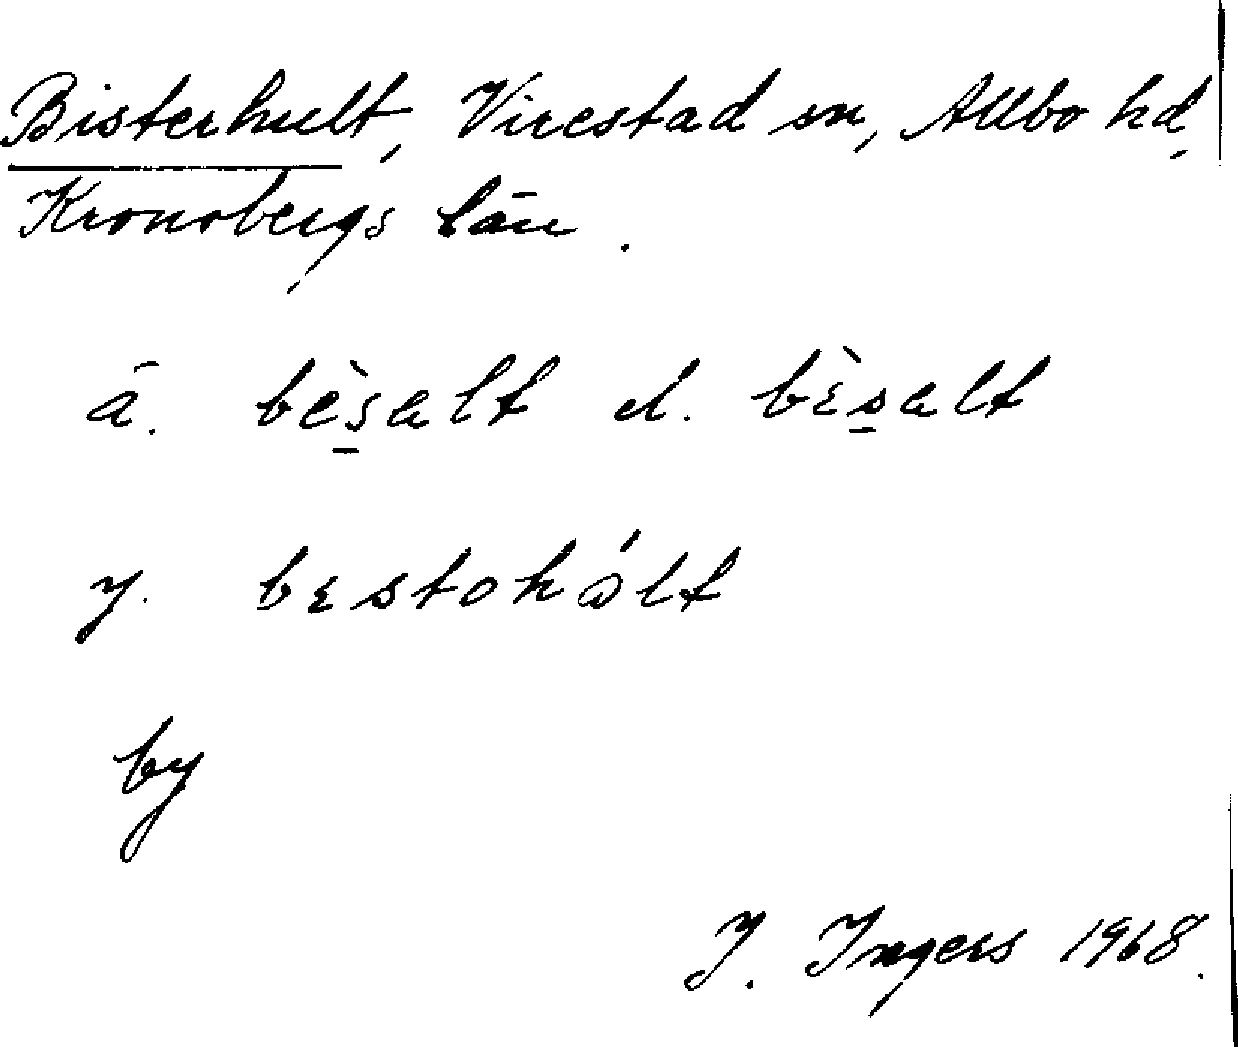 Bisterhult, Virestad sn, Allbo hd,
Kronobergs län.
ä. bès̱alt el. bɛ̀s̱alt
y. bɛstohált
by
I. Ingers 1968.